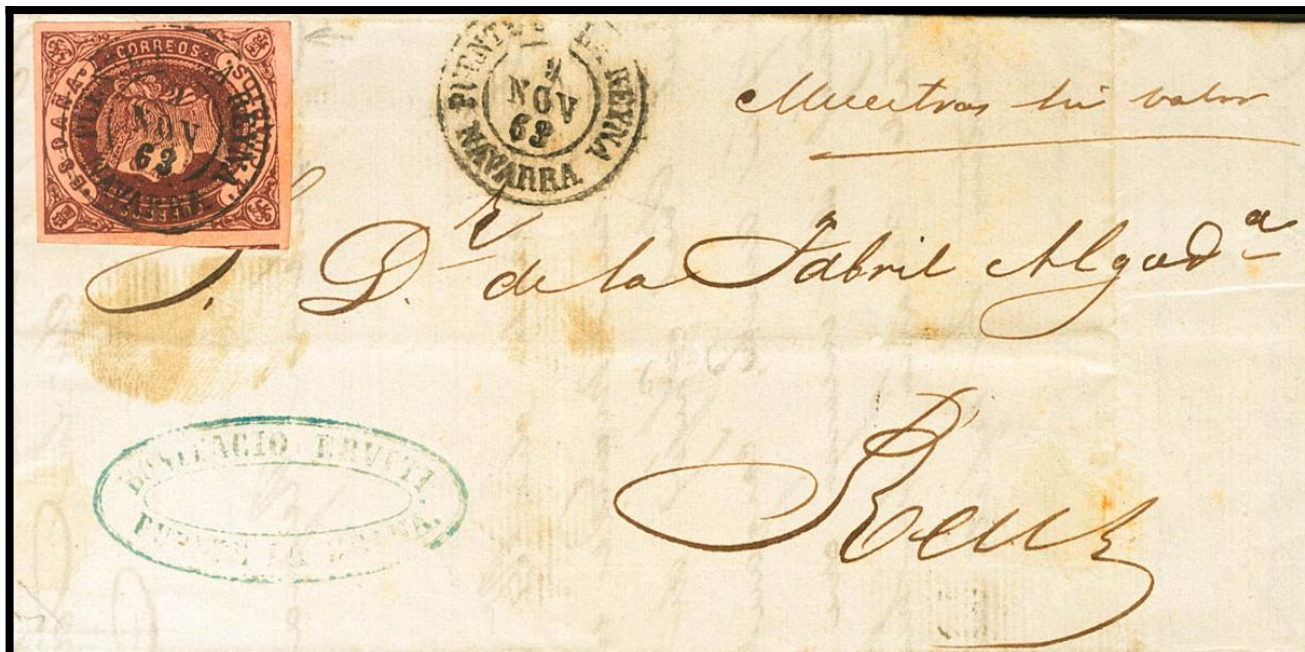 CORREOS
ESPAÑA
PUENTE LA REYNA
2
NOV
63
NAVARRA
PUENTE LA REYNA
2
NOV
63
NAVARRA
Muestras sin valor
S. D.r de la Fabril Algod.a
Reus
BONIFACIO ERVITI.
PUENTE LA REINA.